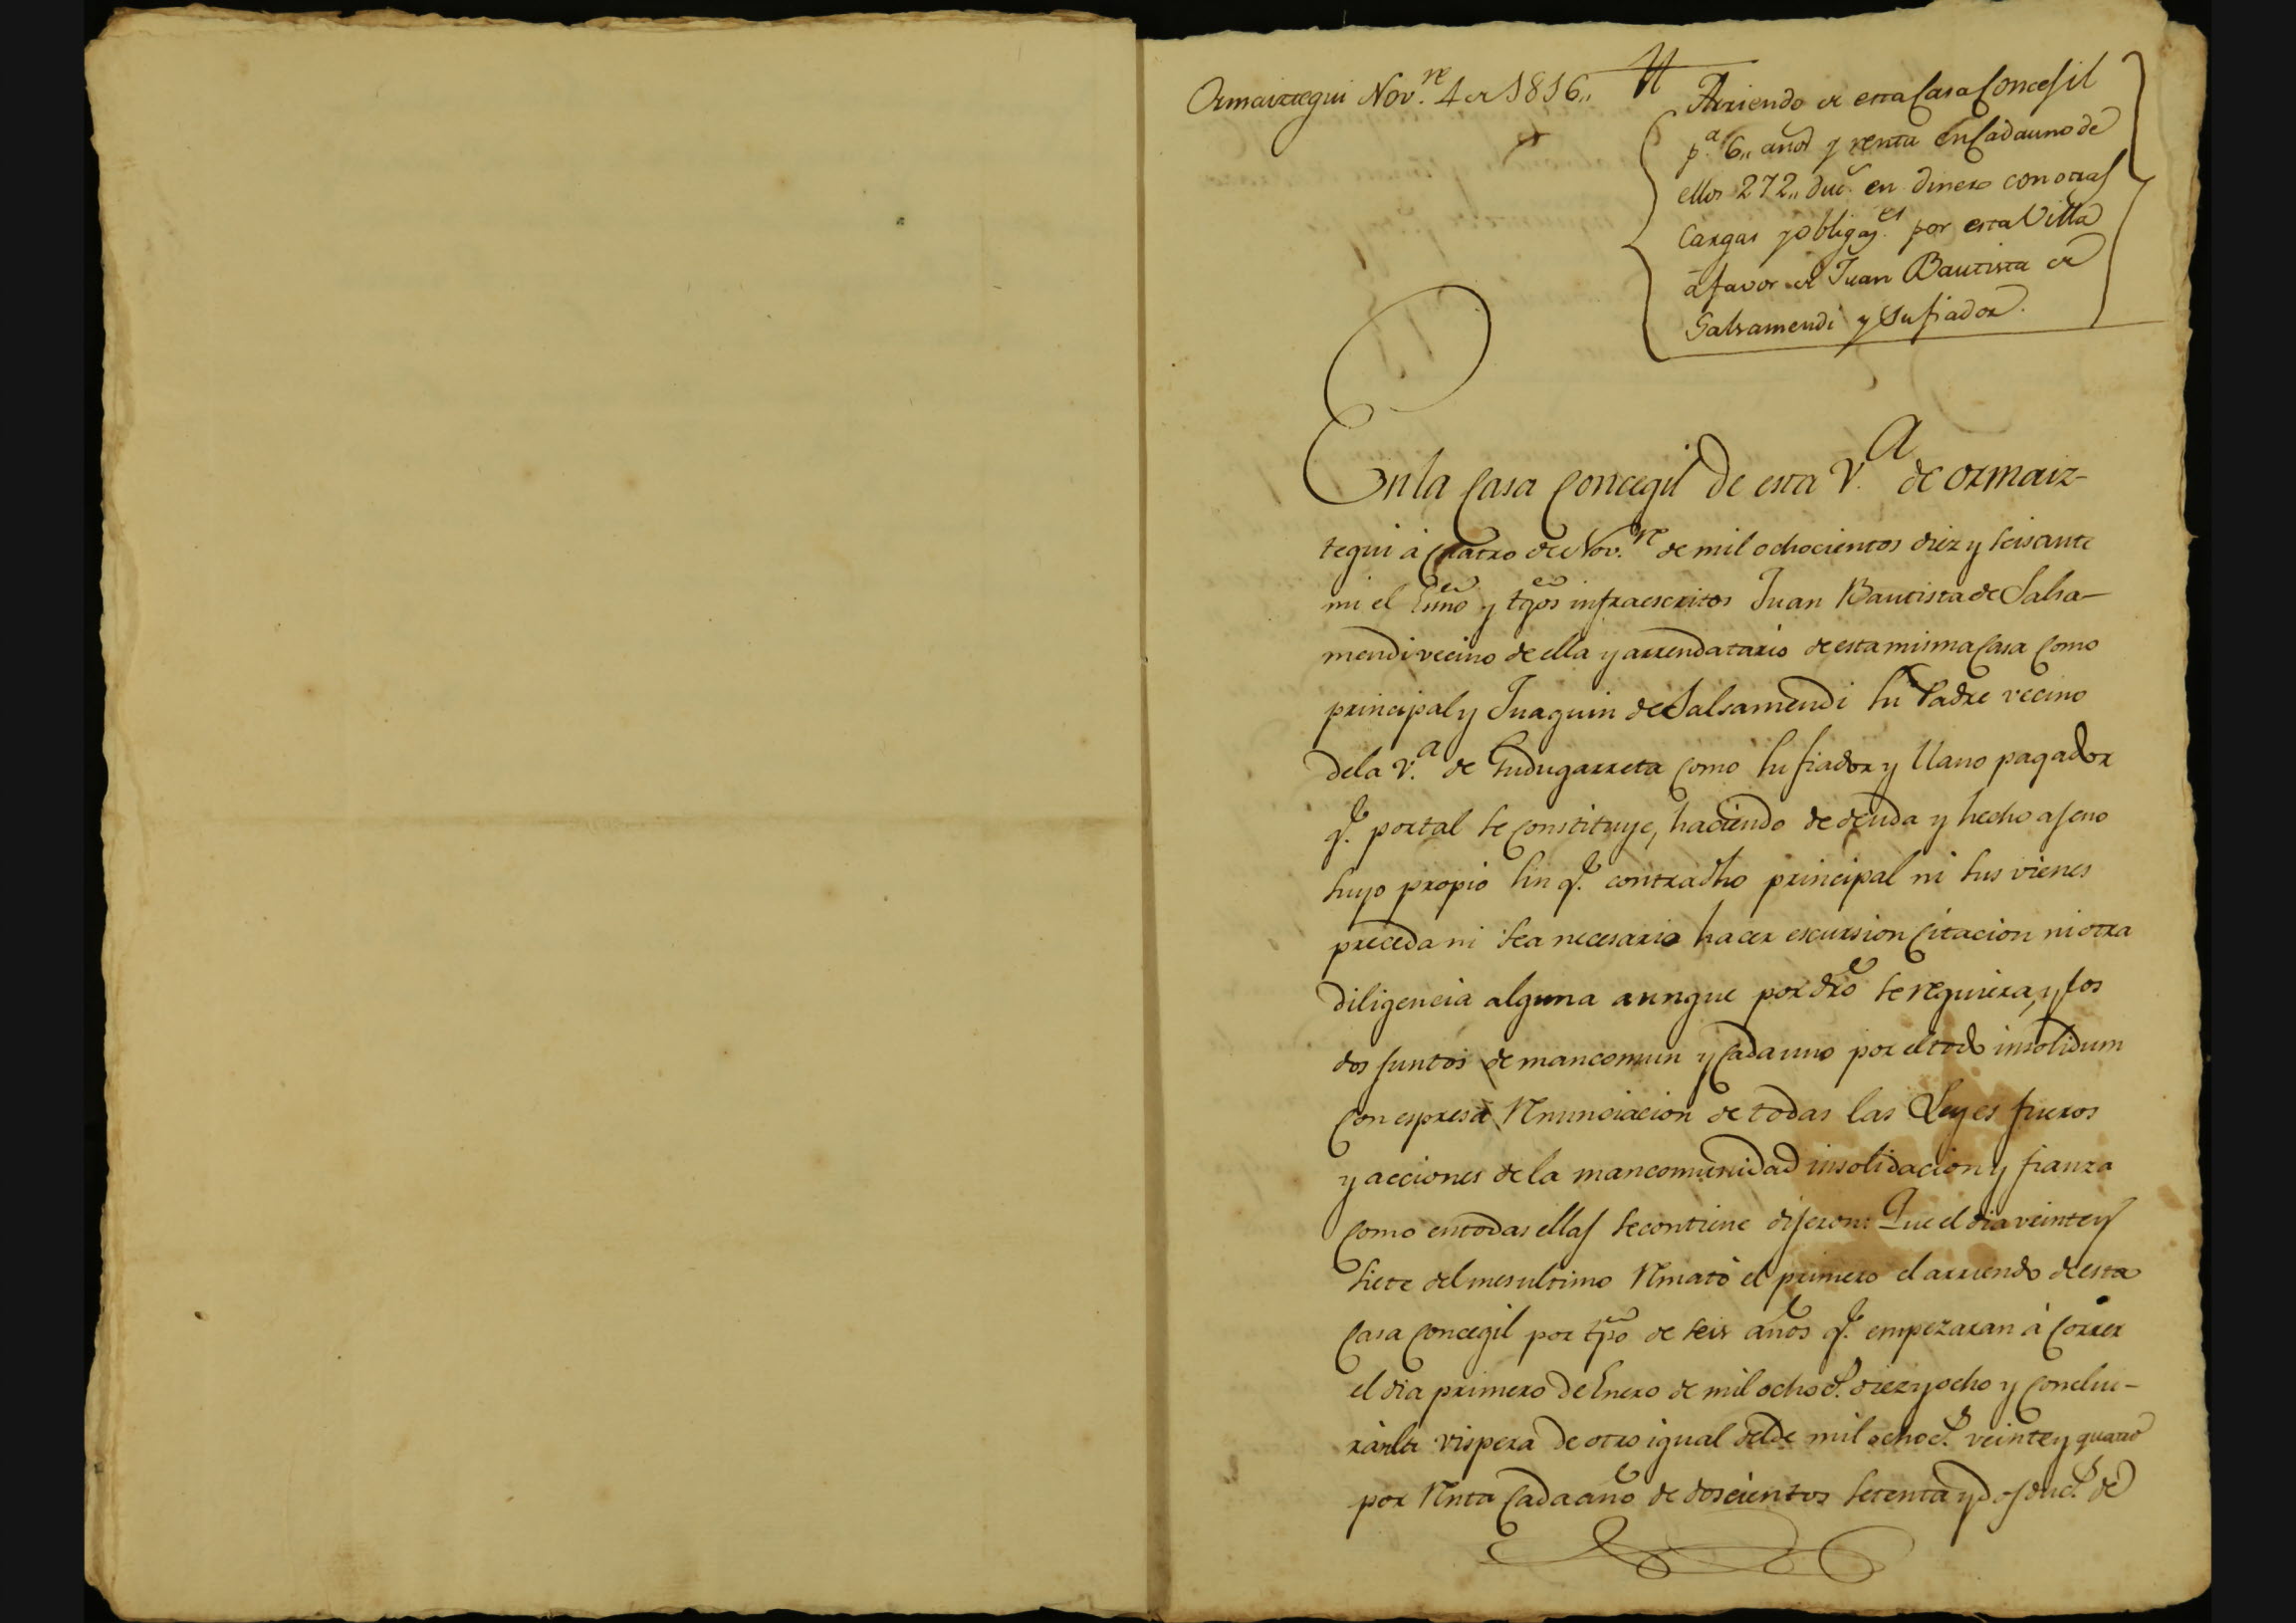 Ormaiztegui Nov.re 4 de 1816,,
Arriendo de esta Casa Concejil
p.a 6,, años y renta en Cada uno de
ellos 272,, duc.s en dinero con otras
Cargas y obligaz.es por esta Villa
à favor de Juan Bautista de
Salsamendi y su fiador.
En la Casa Concegil de esta V.a de Ormaiz-
tegui à quatro de Nov.re de mil ochocientos diez y seis ante
mi el Essno y tgos infraescritos Juan Bautista de Salsa-
mendi vecino de ella y arrendatario de esta misma Casa como
principal y Juaquin de Salsamendi su Padre vecino
de la V.a de Gudugarreta como su fiador y llano pagador
q.e por tal se constituye, haciendo de deuda y hecho ajeno
suyo propio sin q.e contra dho principal ni sus vienes
preceda ni sea necesario hacer escursion Citacion ni otra
diligencia alguna aunque por dro se requiera, y los
dos juntos de mancomun y cada uno por el todo insolidum
Con espresa renunciacion de todas las Leyes fueros
y acciones de la mancomunidad insolidacion y fianza
Como en todas ellas se contiene dijeron: Que el dia veinte y
siete del mes ultimo remató el primero el arriendo de esta
Casa Concegil por tpo de seis años q.e empezaran à Correr
el dia primero de Enero de mil ochoc.s diez y ocho y Conclui-
rán la vispera de otro igual del de mil ochoc.s veinte y quatro
por renta Cada año de doscientos setenta y dos duc.s de